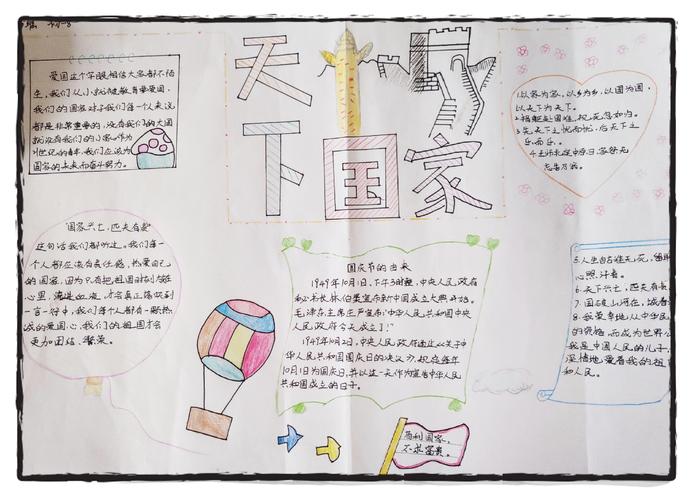 天下
国家
爱国这个字眼,相信大家都不陌
生,我们从小就被教育要爱国,
我们的国家对于我们每一个人来说
都是非常重要的,没有我们的大国
就没有我们的小家。作为
21世纪的青年,我们应该为
国家的未来而奋斗努力。
1.以家为家,以乡为乡,以国为国,
以天下为天下。
2.捐躯赴国难,视死忽如归。
3.先天下之忧而忧,后天下之
乐而乐。
4.王师北定中原日,家祭无
忘告乃翁。
国家兴亡,匹夫有责
这句话我们都听过。我们每一
个人都应该有责任感,热爱自己
的国家,因为只有把祖国时刻放在
心里,
一言一行中,我们每个人都有一颗热
诚的爱国心,我们的祖国才会
更加团结、繁荣。
国庆节的由来
1949年10月1日,下午3时整,中央人民政府
秘书长林伯渠宣布新中国成立大典开始。
毛泽东主席庄严宣布:“中华人民共和国中央
人民政府今天成立了!”
1949年10月2日,中央人民政府通过《关于中
华人民共和国国庆日的决议》,规定每年
10月1日为国庆日,并以这一天作为宣告中华人民
共和国成立的日子。
5.人生自古谁无死,留取
心照汗青。
6.天下兴亡,匹夫有责
7.国破山河在,城春
8.我荣幸地从中华民
的领袖,而成为世界公
我是中国人民的儿子,
深情地爱着我的祖
和人民。
苟利国家,
不求富贵。